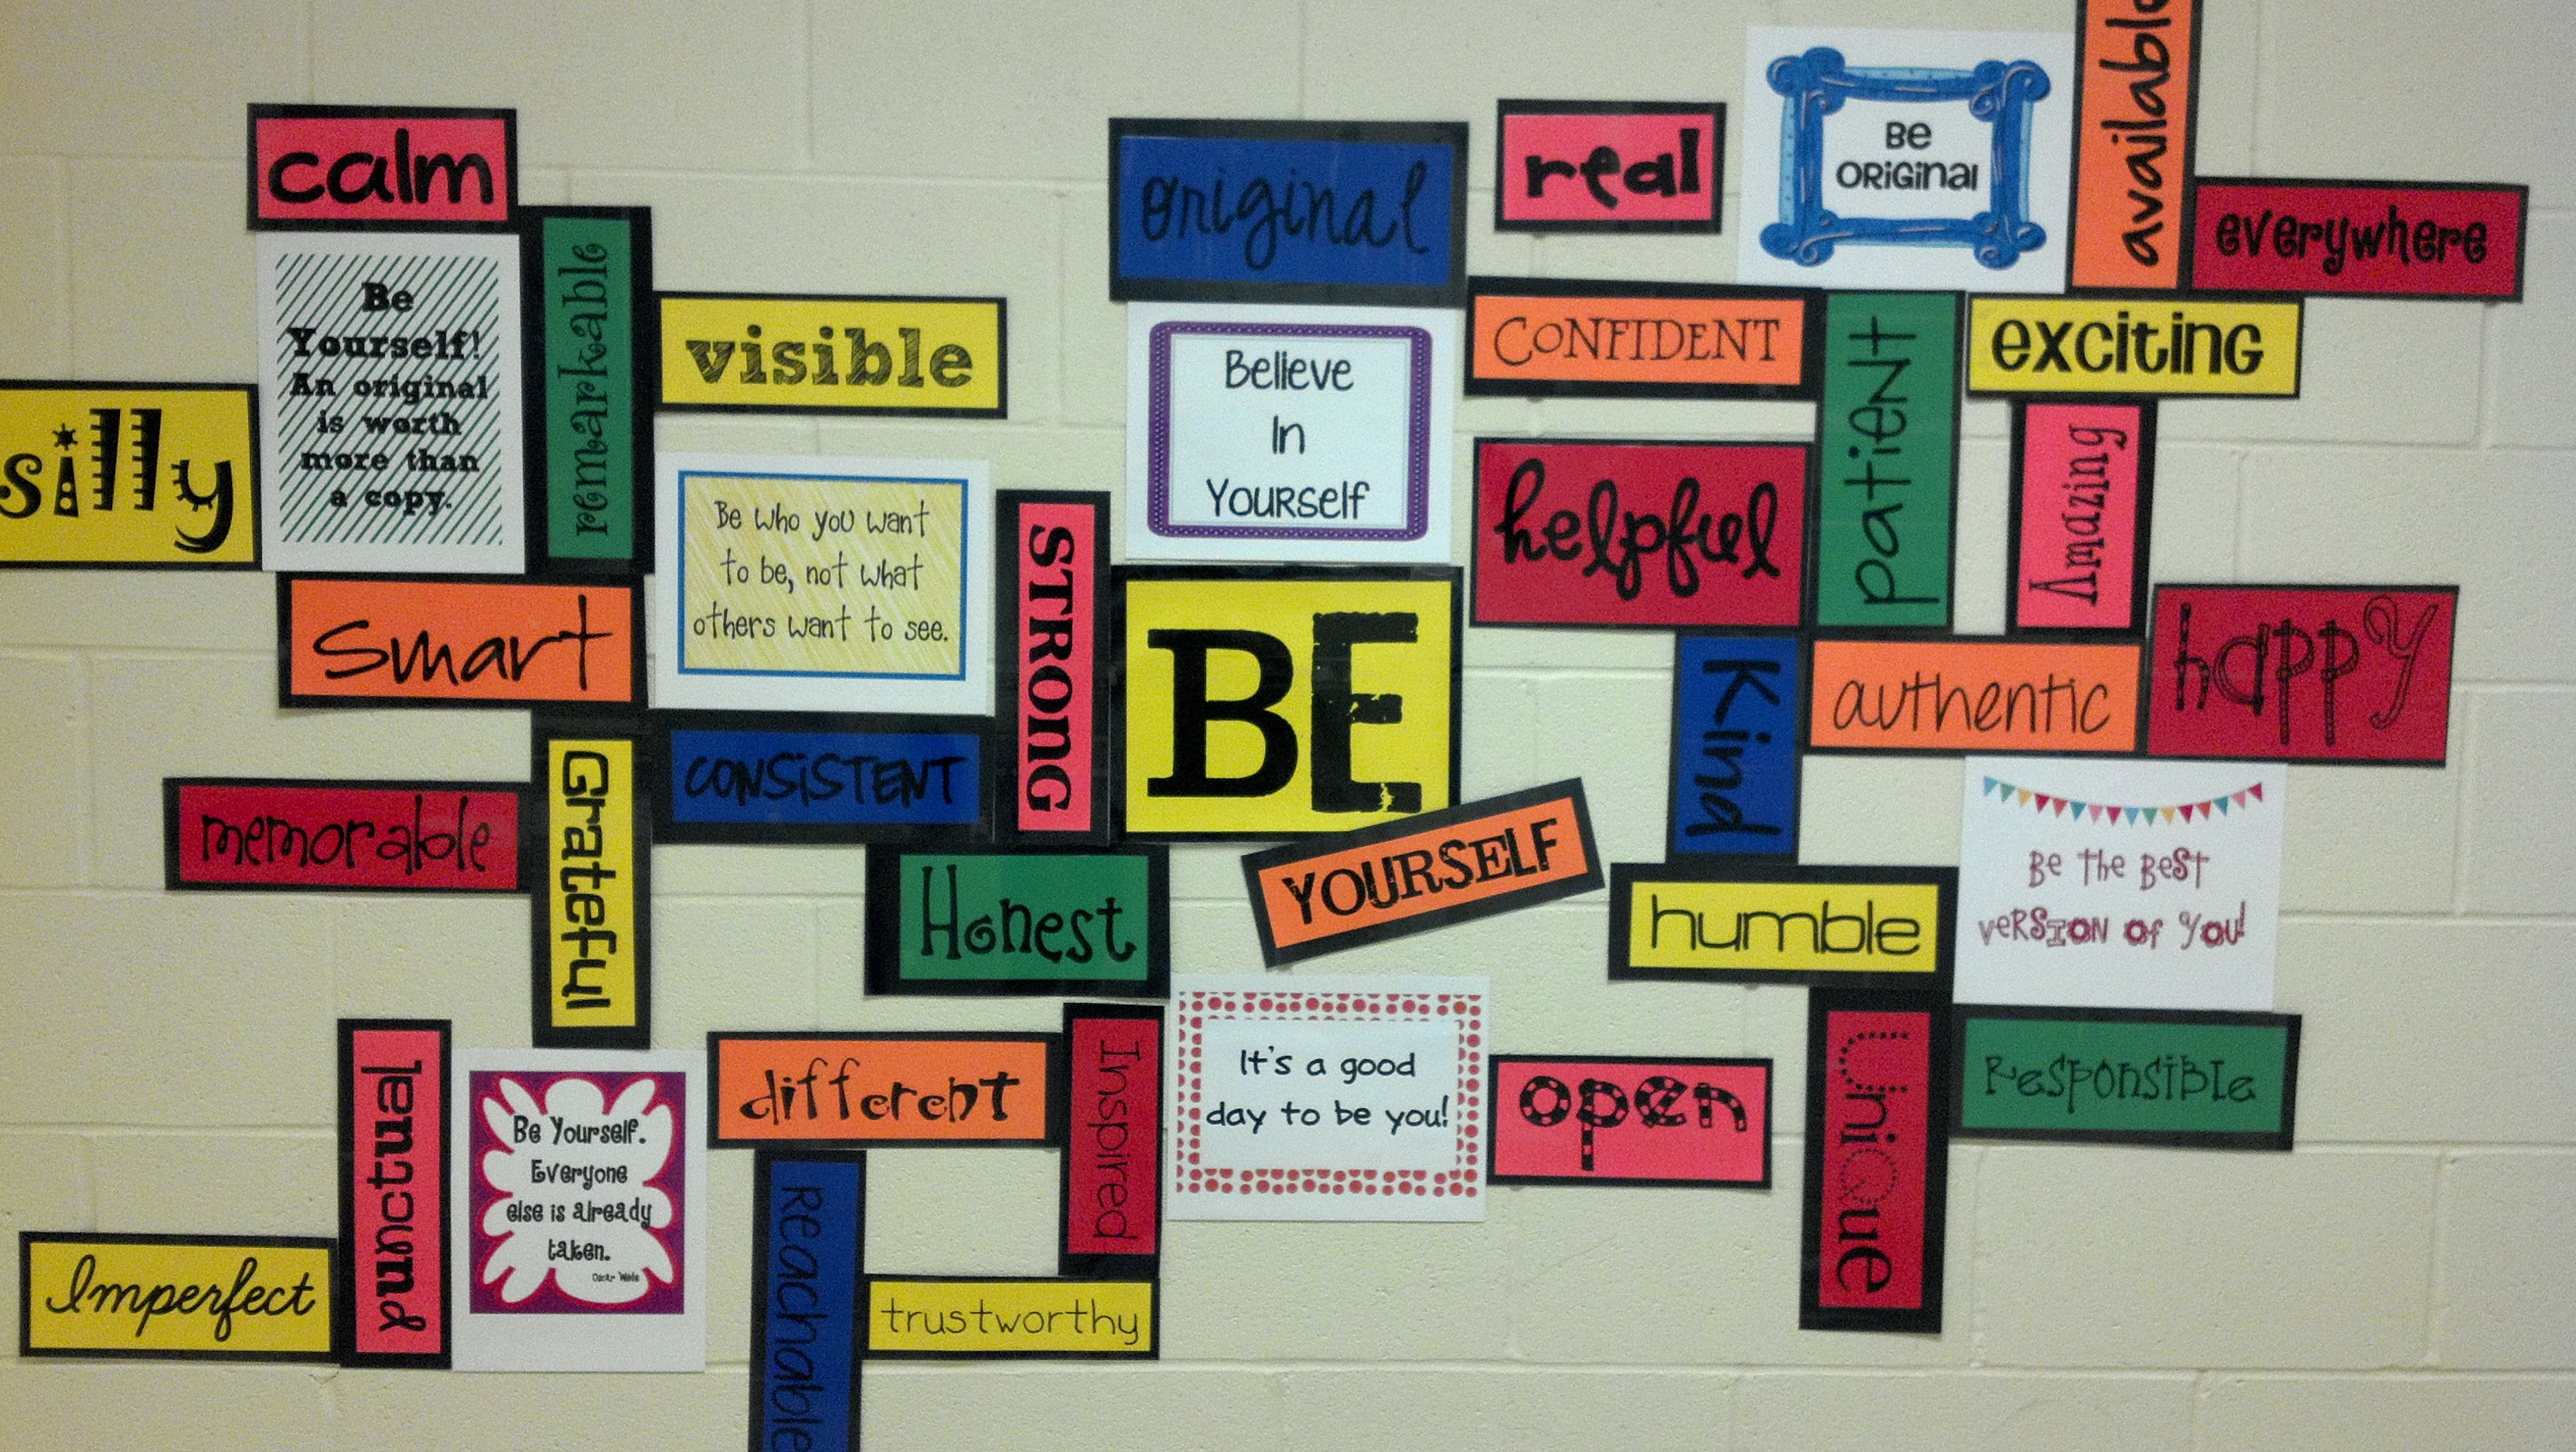 calm
Be
Yourself!
An original
is worth
more than
a copy.
silly
remarkable
visible
smart
Be who you want
to be, not what
others want to see.
STRONG
CONSISTENT
memorable
Grateful
Honest
punctual
Imperfect
Be Yourself.
Everyone
else is already
taken.
Oscar Wilde
different
Inspired
Reachable
trustworthy
original
real
Be
ORiGinal
available
everywhere
Believe
In
Yourself
CONFIDENT
patient
exciting
helpful
Amazing
BE
YOURSELF
Kind
authentic
happy
humble
Be the Best
veRSION of You!
It's a good
day to be you!
open
Unique
Responsible